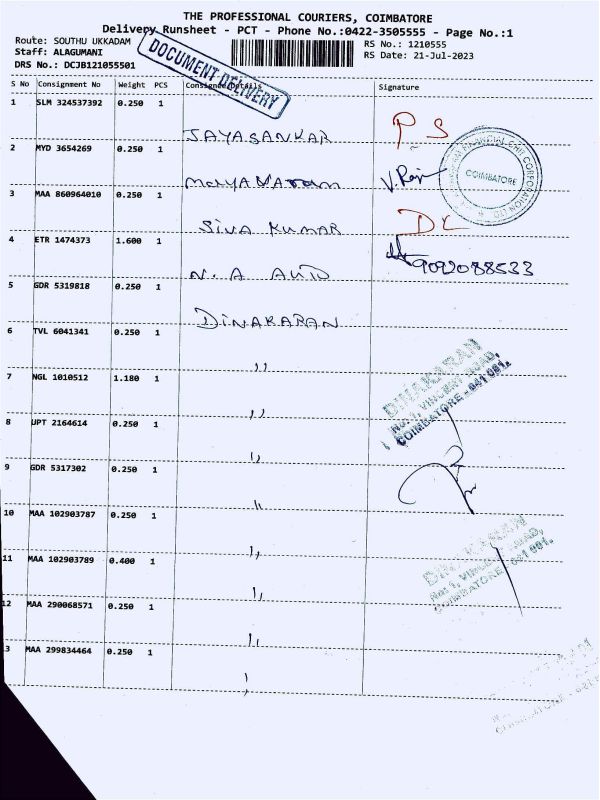 THE PROFESSIONAL COURIERS, COIMBATORE
Delivery Runsheet - PCT - Phone No.:0422-3505555 - Page No.:1
Route: SOUTHU UKKADAM RS No.: 1210555
Staff: ALAGUMANI RS Date: 21-Jul-2023
DRS No.: DCJB121055501
DOCUMENT DELIVERY
S No Consignment No Weight PCS Consignee Details Signature
1 SLM 324537392 0.250 1
JAYASANKAR PS
2 MYD 3654269 0.250 1
COIMBATORE
3 MAA 860964010 0.250 1
SIVA KUMAR DL
4 ETR 1474373 1.600 1
9092088533
N. A AUTO
5 GDR 5319818 0.250 1
DINAKARAN
6 TVL 6041341 0.250 1
,,
DINAKARAN
No: 1, VINCENT ROAD,
COIMBATORE - 641 001.
7 NGL 1010512 1.180 1
,,
8 UPT 2164614 0.250 1
,,
9 GDR 5317302 0.250 1
,,
10 MAA 102903787 0.250 1
,,
DINAKARAN
No: 1, VINCENT ROAD,
COIMBATORE - 641 001.
11 MAA 102903789 0.400 1
,,
12 MAA 290068571 0.250 1
,,
13 MAA 299834464 0.250 1
,,